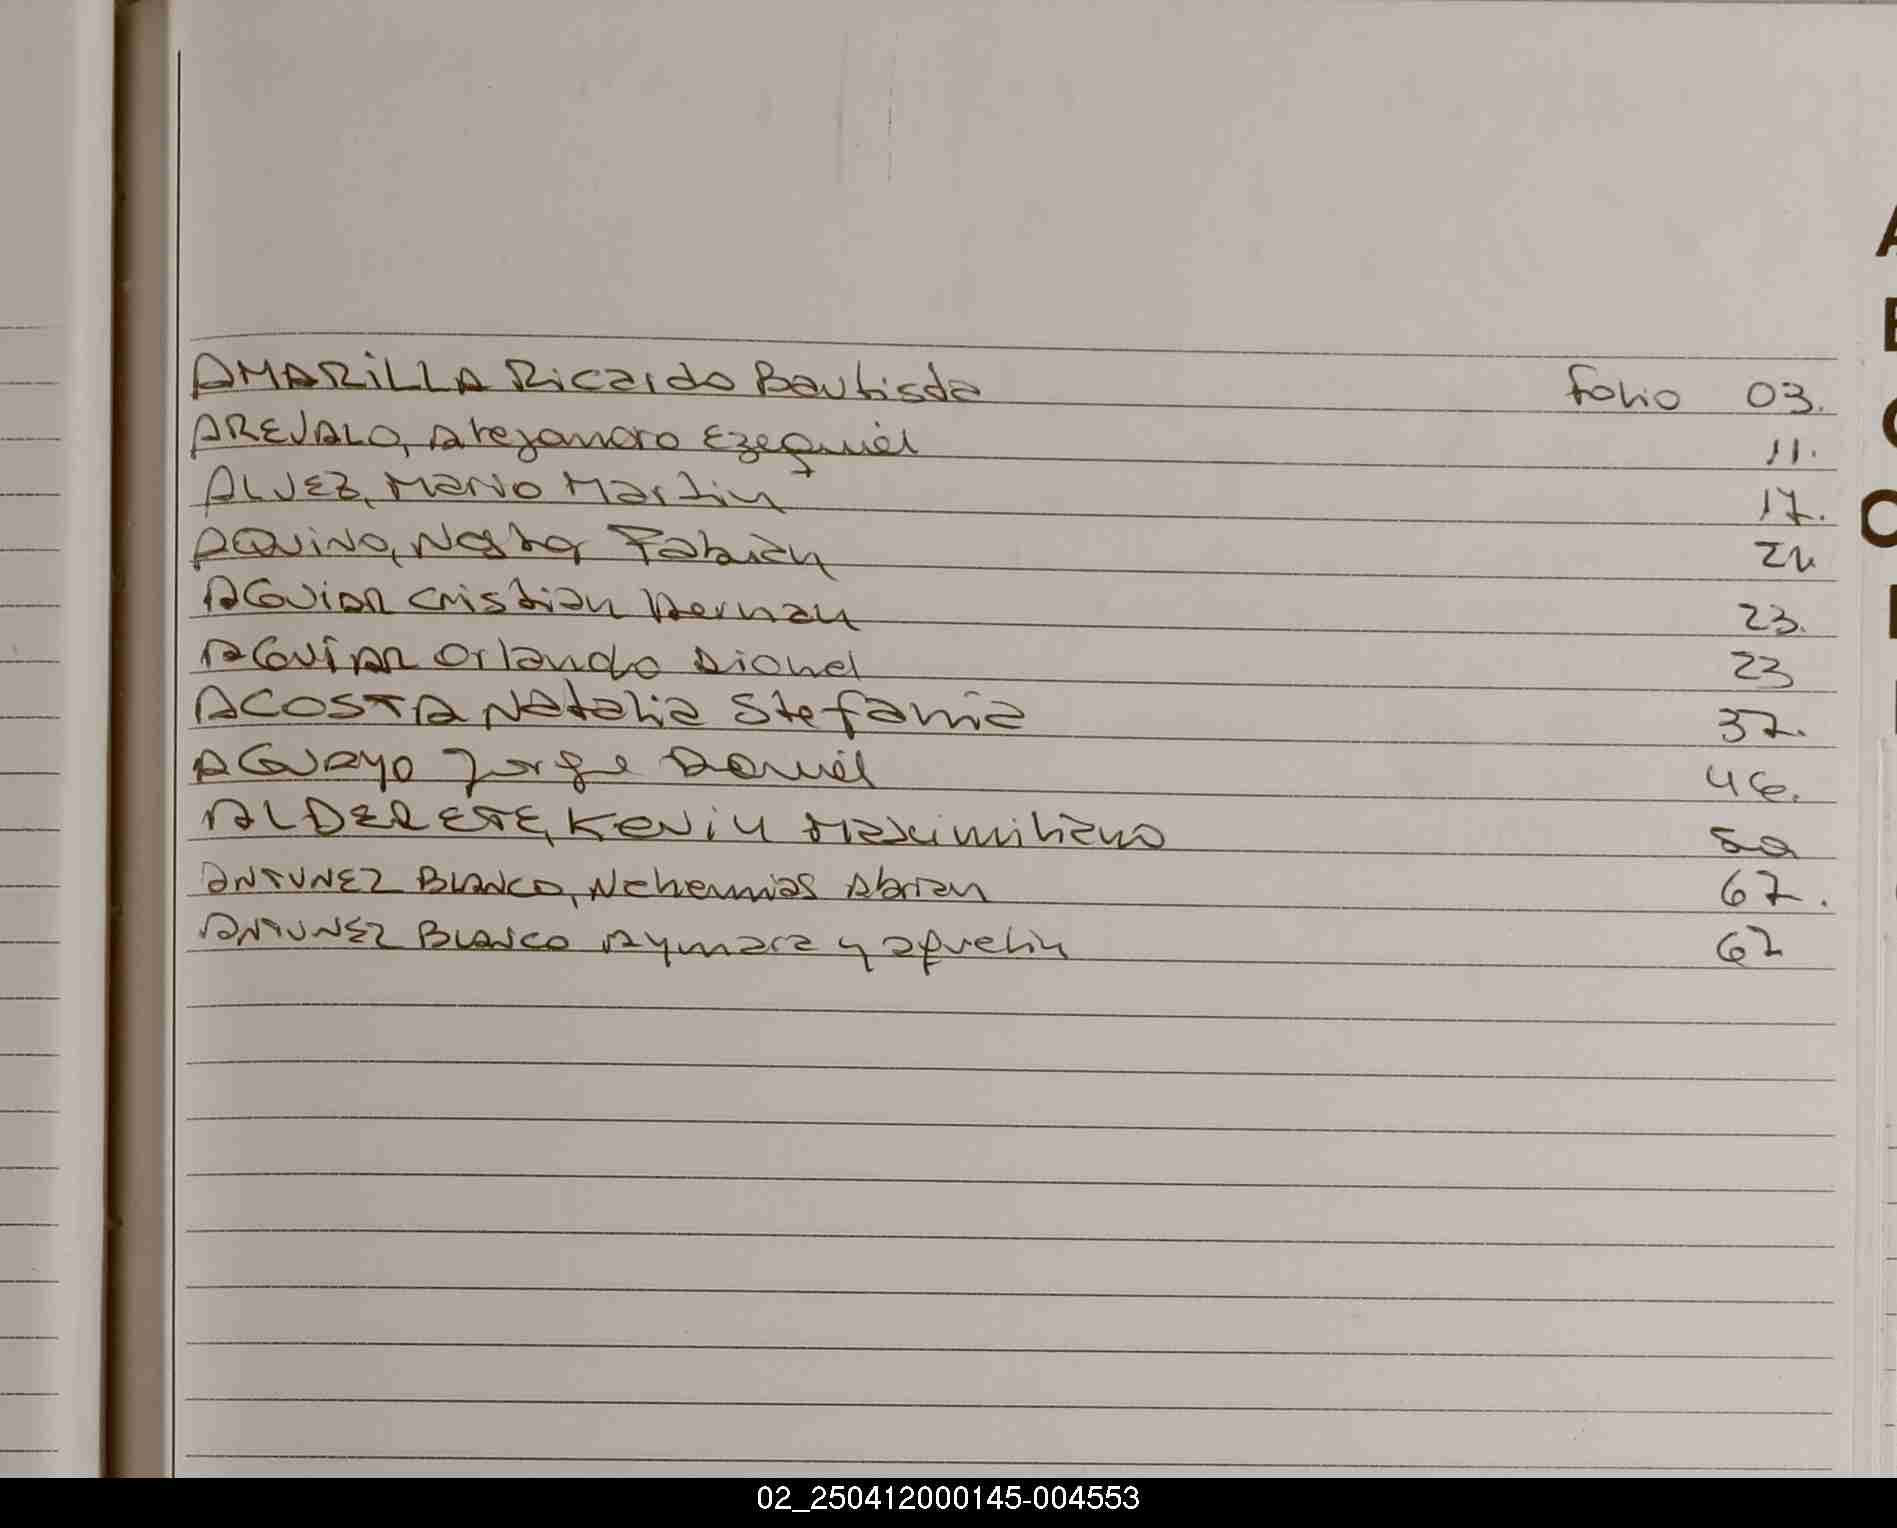 AMARiLLA Ricardo Bautista folio 03.
AREVALO, Alejandro Ezequiel 11.
ALVEZ, Mario Martin 17.
AQUiNO, Nestor Fabian
AGUiAR Cristian Hernan 23.
AGUiAR Orlando Lionel 23
ACOSTA Natalia Stefania 37.
AGUAYO Jorge Daniel 46.
ALDERETE, Kevin Maximiliano
ANTUNEZ BLANCO, Nehemias Abrian 67.
ANTUNEZ BLANCO Aymara 67
A
E
C
O
02_250412000145-004553